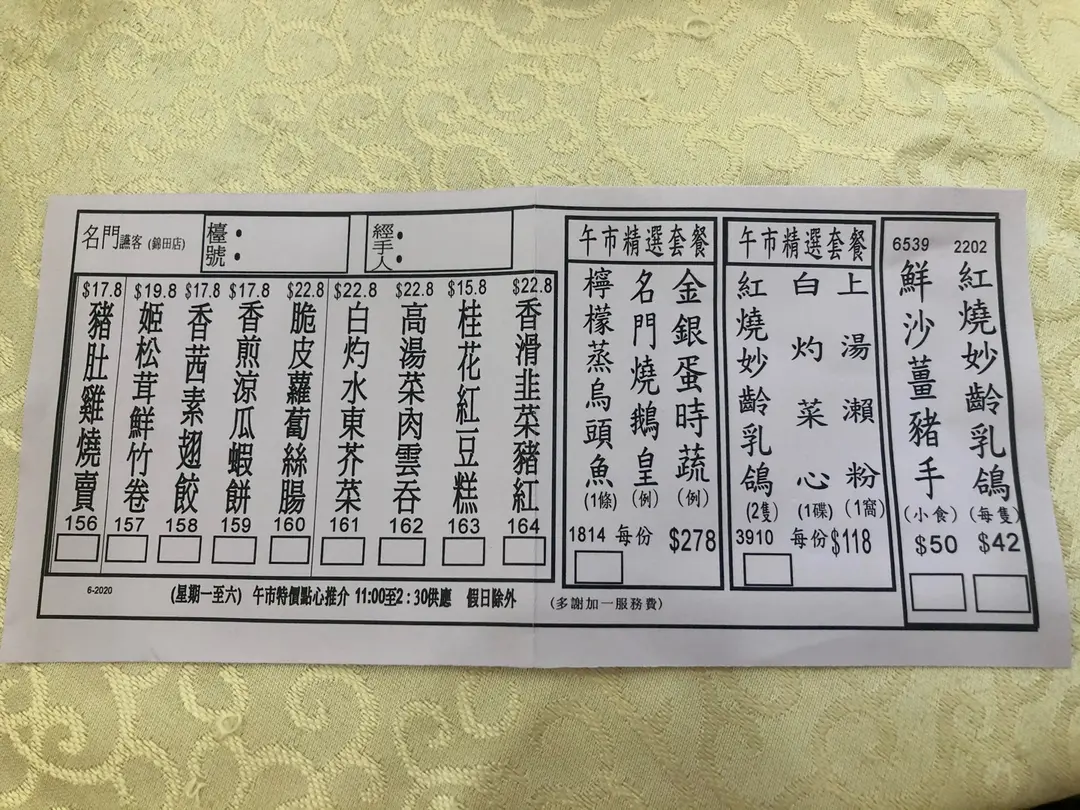 名門讌客 (錦田店)
檯號：
經手人：
$17.8
豬肚雞燒賣
156
$19.8
姬松茸鮮竹卷
157
$17.8
香茜素翅餃
158
$17.8
香煎涼瓜蝦餅
159
$22.8
脆皮蘿蔔絲腸
160
$22.8
白灼水東芥菜
161
$22.8
高湯菜肉雲吞
162
$15.8
桂花紅豆糕
163
$22.8
香滑韭菜豬紅
164
6-2020
(星期一至六) 午市特價點心推介 11:00至2:30供應 假日除外
(多謝加一服務費)
午市精選套餐
金銀蛋時蔬(例)
名門燒鵝皇(例)
檸檬蒸烏頭魚(1條)
1814 每份 $278
午市精選套餐
上湯瀨粉(1窩)
白灼菜心(1碟)
紅燒妙齡乳鴿(2隻)
3910 每份 $118
2202
紅燒妙齡乳鴿(每隻)
$42
6539
鮮沙薑豬手(小食)
$50